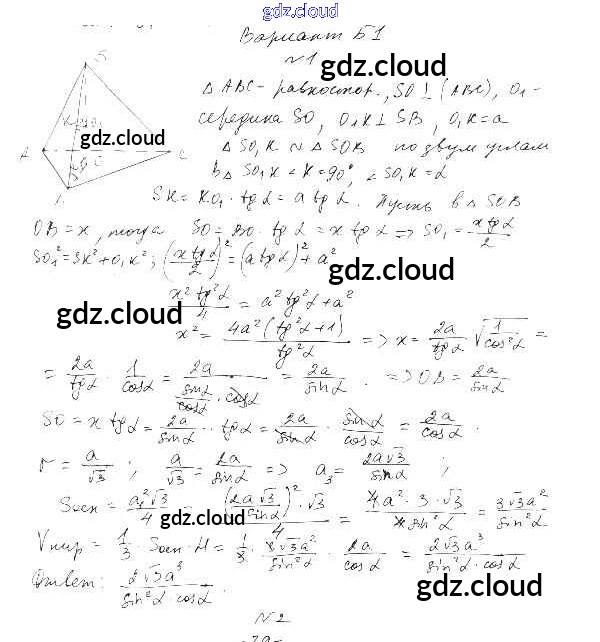 gdz.cloud
Вариант Б1
N1
gdz.cloud
S
△ABC - равностор., SO⊥(ABC), O₁ -
середина SO, O₁K⊥SB, O₁K=a
K O₁ gdz.cloud
A O C
△SO₁K ∾ △SOB по двум углам
В △SO₁K <K=90°, ∠SO₁K=α
SK=KO₁·tgα=a tgα. Пусть в △SOB
OB=x, тогда SO=BO·tgα=x tgα => SO₁=(x tgα)/2
SO₁²=SK²+O₁K²; ((x tgα)/2)²=(a tgα)²+a²
gdz.cloud
(x² tg²α)/4 = a² tg²α+a²
gdz.cloud
x² = (4a²(tg²α+1))/(tg²α) => x = 2a/tgα · √(1/cos²α) =
= 2a/tgα · 1/cosα = 2a/(sinα/cosα · cosα) = 2a/sinα. => OB=2a/sinα
SO = x tgα = 2a/sinα · tgα = 2a/sinα · sinα/cosα = 2a/cosα.
r = a/√3; a/√3 = 2a/sinα => a₃ = 2a√3/sinα;
Sосн = a₃²√3/4 = ((2a√3/sinα)²·√3)/4 = (4a²·3·√3)/(4sin²α) = 3√3a²/sin²α
gdz.cloud
gdz.cloud
Vпир = 1/3 Sосн·H = 1/3 · 3√3a²/sin²α · 2a/cosα = 2√3a³/(sin²α·cosα)
Ответ: 2√3a³/(sin²α·cosα).
gdz.cloud
gdz.cloud
N2